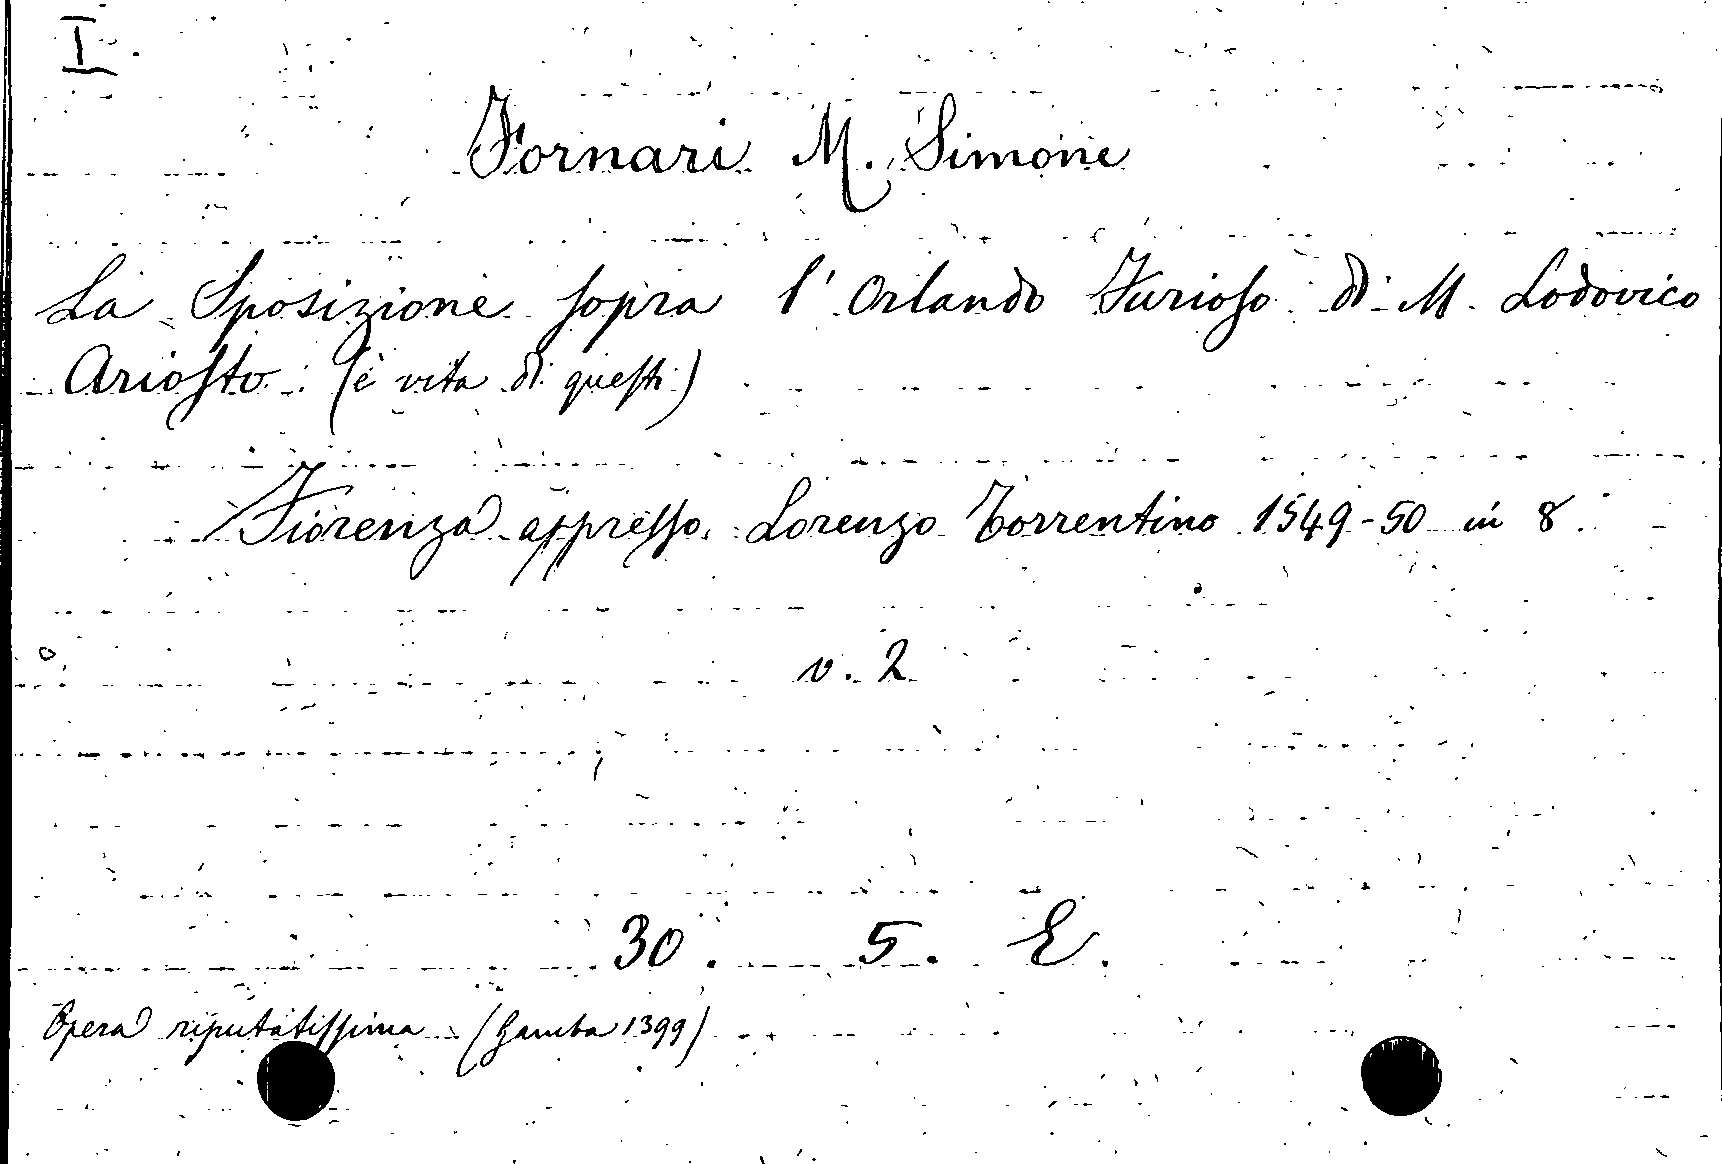 I.
Fornari M. Simone
La Sposizione sopra l'Orlando Furioso di M. Lodovico
Ariosto. (è vita di questi)
Fiorenza appresso Lorenzo Torrentino 1549-50 in 8.
v. 2
30. 5. E.
Opera riputatissima (Gamba 1399)